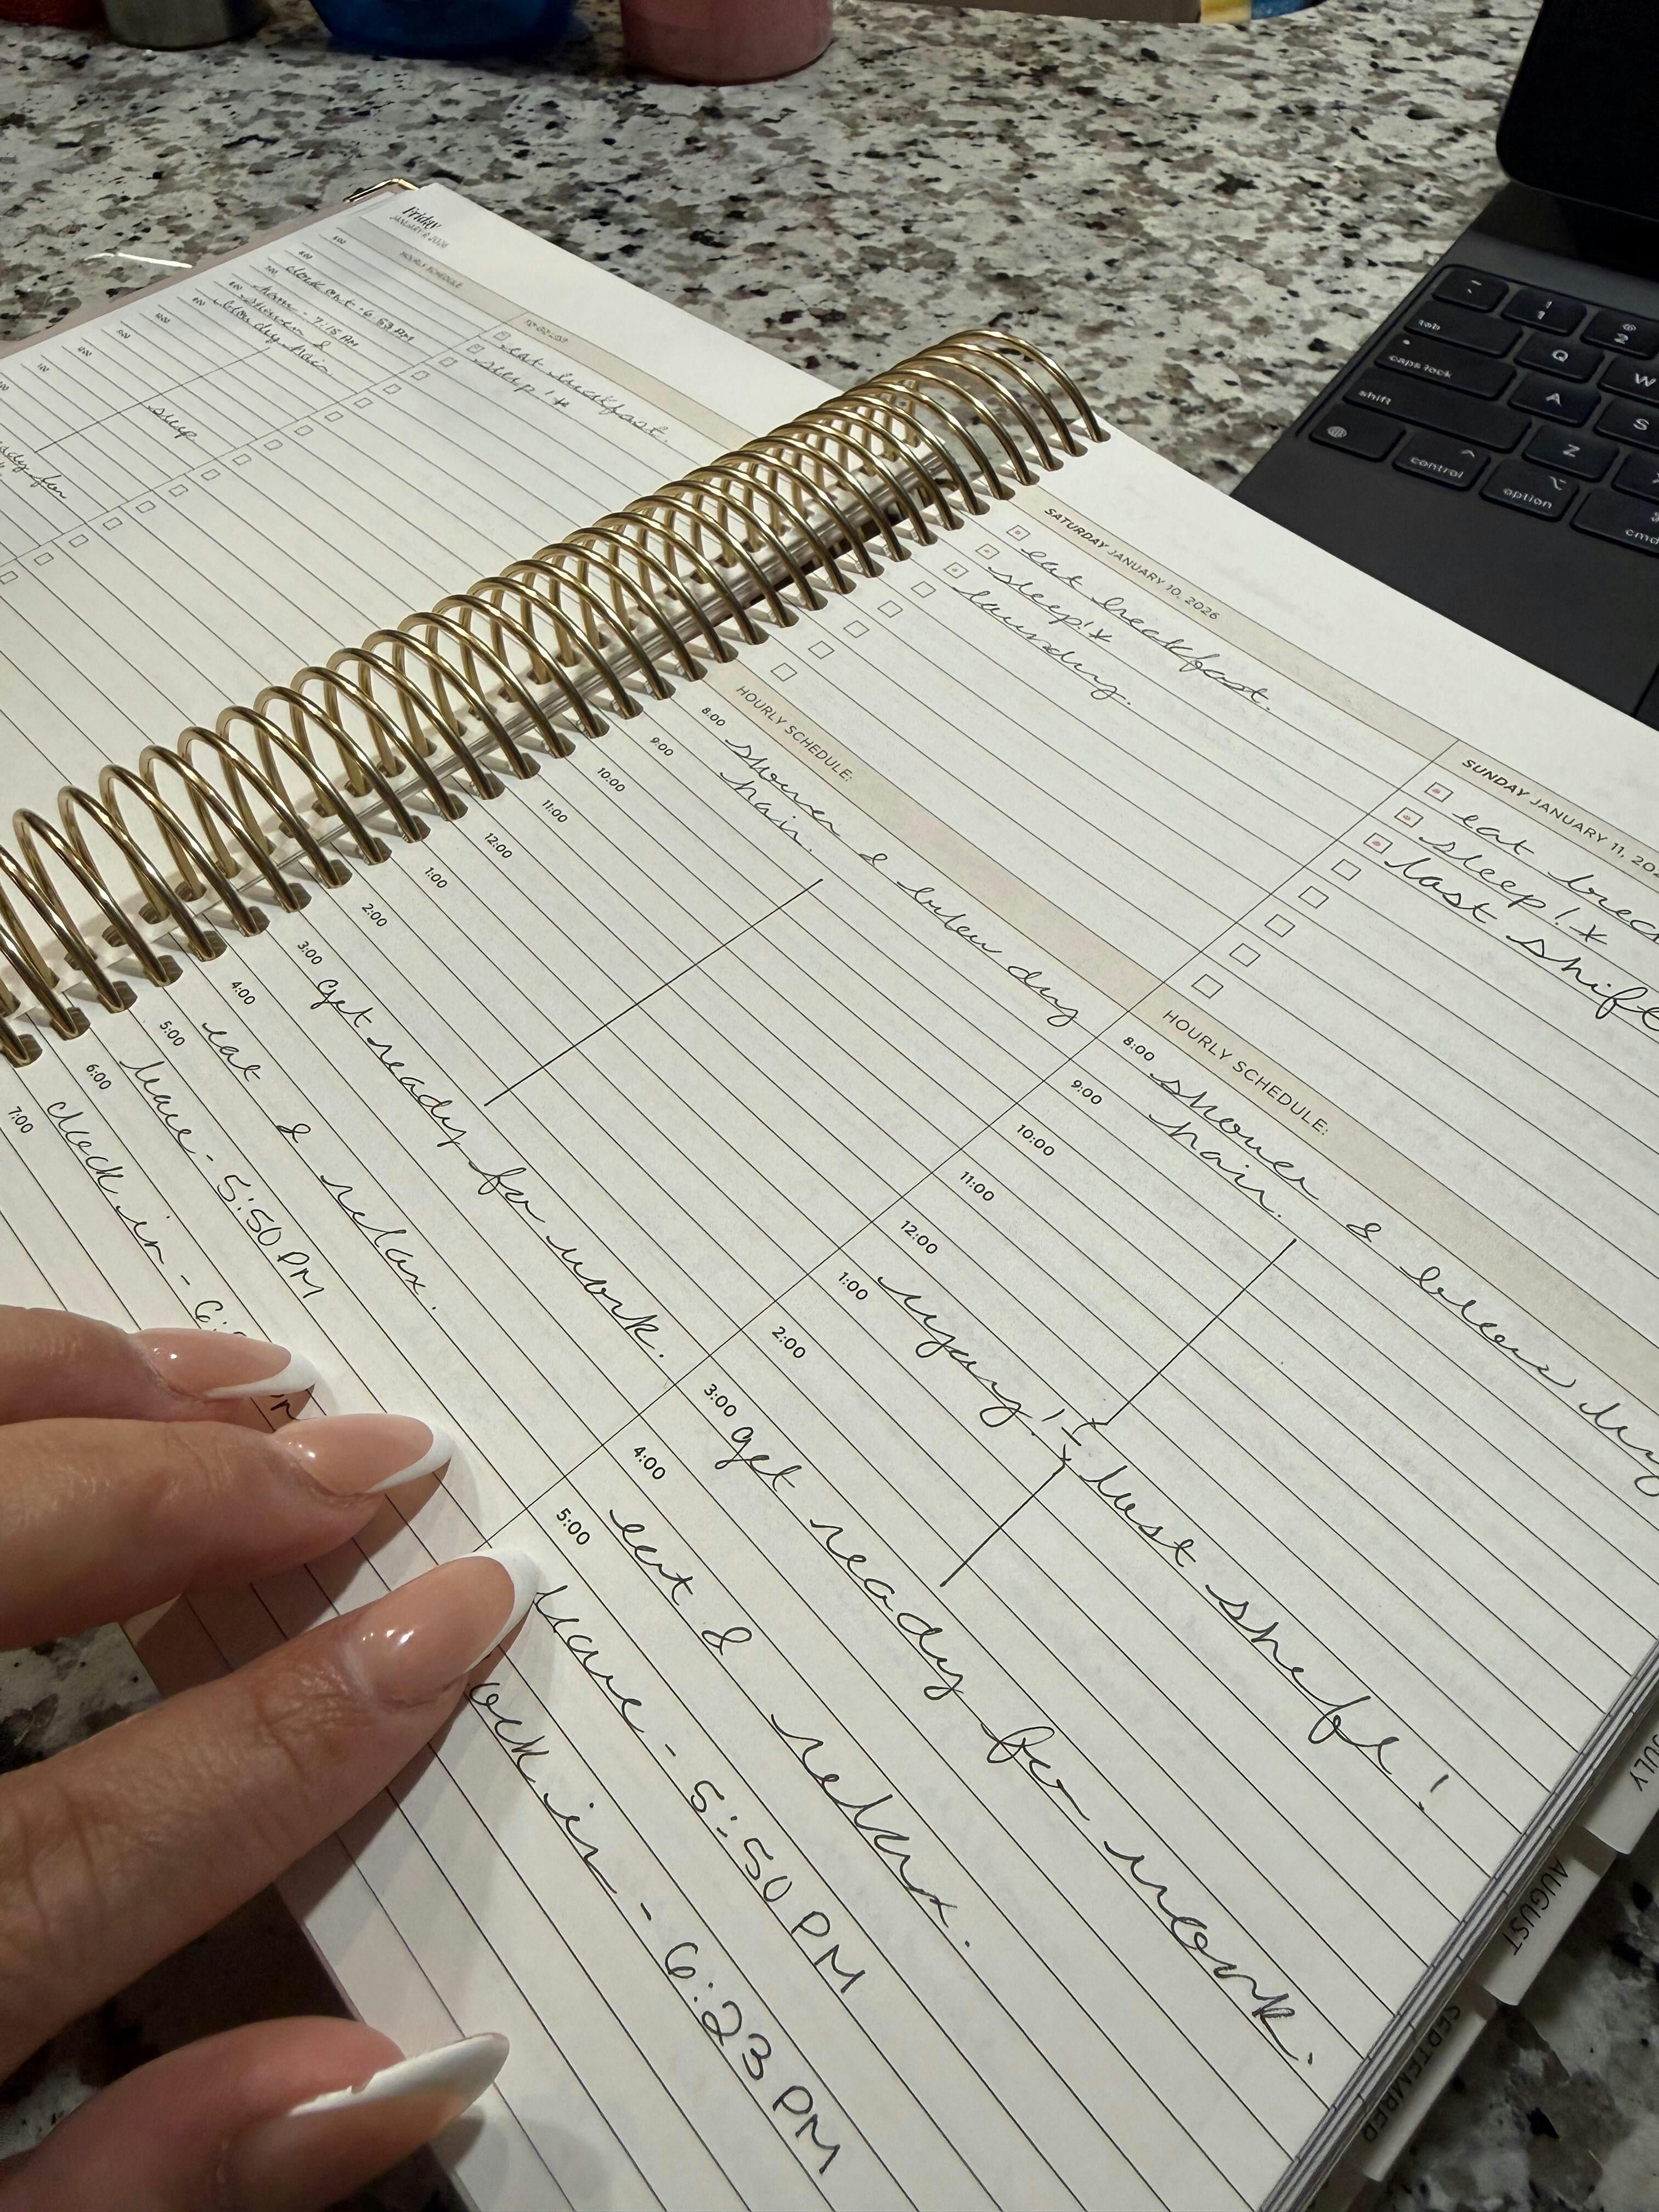 Friday
JANUARY 9, 2026
HOURLY SCHEDULE
TO-DO LIST
6:00
7:00
8:00
9:00
10:00
11:00
12:00
1:00
clock out - 6:53 AM
home - 7:15 AM
shower &
blow dry hair
sleep
eat breakfast.
sleep! *
SATURDAY JANUARY 10, 2026
eat breakfast.
sleep! *
laundry.
HOURLY SCHEDULE:
8:00 shower & blow dry
9:00 hair.
10:00
11:00
12:00
1:00
2:00
3:00 get ready for work.
4:00 eat & relax.
5:00 leave - 5:50 PM
6:00 clock in - 6:
7:00
SUNDAY JANUARY 11, 202
eat brea
sleep! *
last shift
HOURLY SCHEDULE:
8:00 shower & blow dry
9:00 hair.
10:00
11:00
12:00
1:00 yay! * last shift!
2:00
3:00 get ready for work.
4:00 eat & relax.
5:00 leave - 5:50 PM
ock in - 6:23 PM
JULY
AUGUST
SEPTEMBER
tab
caps lock
shift
control
option
cmd
Q
W
A
S
Z
1
2